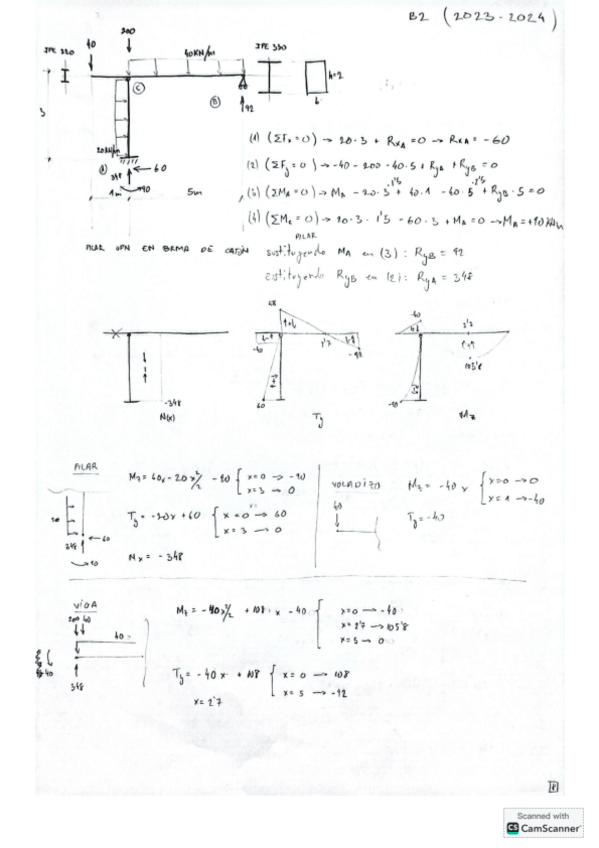 B2 (2023-2024)
200
40
40KN/m
IPE 330
h=2
b
C
B
92
3
20KN/m
A
60
348
90
1m
5m
(1) (ΣFx=0) → 20·3 + RxA = 0 → RxA = -60
(2) (ΣFy=0) → -40 - 200 - 40·5 + RyA + RyB = 0
(3) (ΣMA=0) → MA - 20·3·1'5 + 40·1 - 40·5 + RyB·5 = 0
(4) (ΣMc=0) → 20·3·1'5 - 60·3 + MA = 0 → MA = +90 KN
PILAR
PILAR UPN EN FORMA DE CAJÓN
sustituyendo MA en (3): RyB = 92
sustituyendo RyB en (2): RyA = 348
-348
N(x)
-40
2'7
-92
60
Ty
-40
2'7
105'8
-90
Mz
PILAR
Mz = 60x - 20x²/2 - 90
x=0 → -90
x=3 → 0
Ty = -20x + 60
x=0 → 60
x=3 → 0
Nx = -348
348
60
90
VOLADIZO
40
Mz = -40x
x=0 → 0
x=1 → -40
Ty = -40
VIGA
200 40
40
348
Mz = -40x²/2 + 108·x - 40
x=0 → -40
x=2'7 → 105'8
x=5 → 0
Ty = -40x + 108
x=0 → 108
x=5 → -92
x=2'7
Scanned with
CS CamScanner